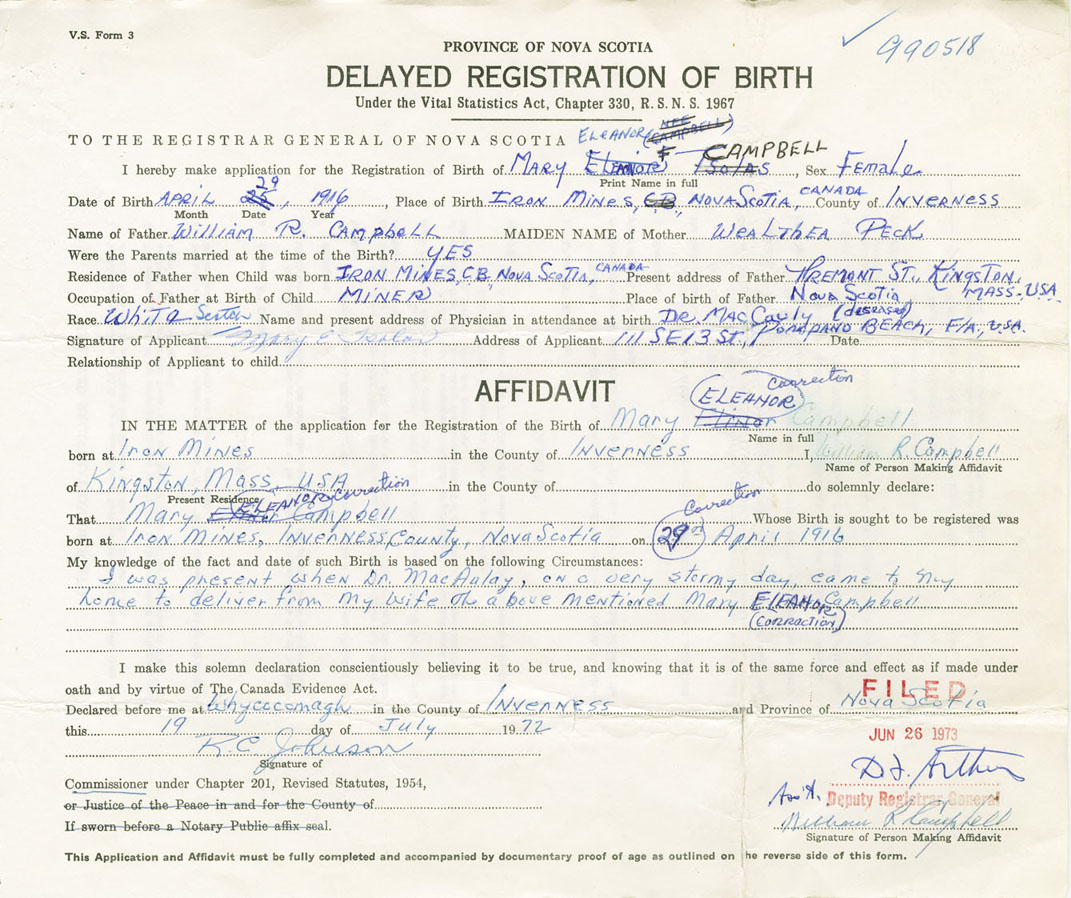 V.S. Form 3
✓ 990518
PROVINCE OF NOVA SCOTIA
DELAYED REGISTRATION OF BIRTH
Under the Vital Statistics Act, Chapter 330, R. S. N. S. 1967
TO THE REGISTRAR GENERAL OF NOVA SCOTIA ELEANOR (NEE CAMPBELL)
I hereby make application for the Registration of Birth of MARY F CAMPBELL, Sex Female
Print Name in full
Date of Birth APRIL 29, 1916, Place of Birth IRON MINES, CB, NOVA SCOTIA, CANADA County of INVERNESS
Month Date Year
Name of Father William R. Campbell MAIDEN NAME of Mother WeALThEA PECK
Were the Parents married at the time of the Birth? YES
Residence of Father when Child was born IRON MINES, C.B, NOVA SCOTIA, CANADA Present address of Father TREMONT ST., KINGSTON, MASS. USA
Occupation of Father at Birth of Child MINER Place of birth of Father NOVA SCOTIA
Race White Name and present address of Physician in attendance at birth DR. MACCauly
Signature of Applicant Mary E Address of Applicant 111 SE 13 St., POMPANO BEACH, F/A, USA. Date
Relationship of Applicant to child
AFFIDAVIT
IN THE MATTER of the application for the Registration of Birth of Mary Elinor ELEANOR correction Campbell
Name in full
born at Iron Mines in the County of Inverness I, William R. Campbell
Name of Person Making Affidavit
of Kingston, Mass, USA in the County of do solemnly declare:
Present Residence
That Mary ELEANOR correction Campbell Whose Birth is sought to be registered was
born at Iron Mines, Inverness County, Nova Scotia on 29 correction April 1916
My knowledge of the fact and date of such Birth is based on the following Circumstances:
I was present when Dr. MacAulay, on a very stormy day, came to my
home to deliver from my wife the above mentioned Mary ELEANOR Campbell
(CORRACTION)
I make this solemn declaration conscientiously believing it to be true, and knowing that it is of the same force and effect as if made under
oath and by virtue of The Canada Evidence Act.
Declared before me at Whycocomagh in the County of Inverness and Province of Nova Scotia
FILED
this 19 day of July 1972
JUN 26 1973
K.C Johnson
Signature of
D.J. Arthur
Commissioner under Chapter 201, Revised Statutes, 1954,
Ass't. Deputy Registrar General
or Justice of the Peace in and for the County of
William R Campbell
If sworn before a Notary Public affix seal.
Signature of Person Making Affidavit
This Application and Affidavit must be fully completed and accompanied by documentary proof of age as outlined on the reverse side of this form.